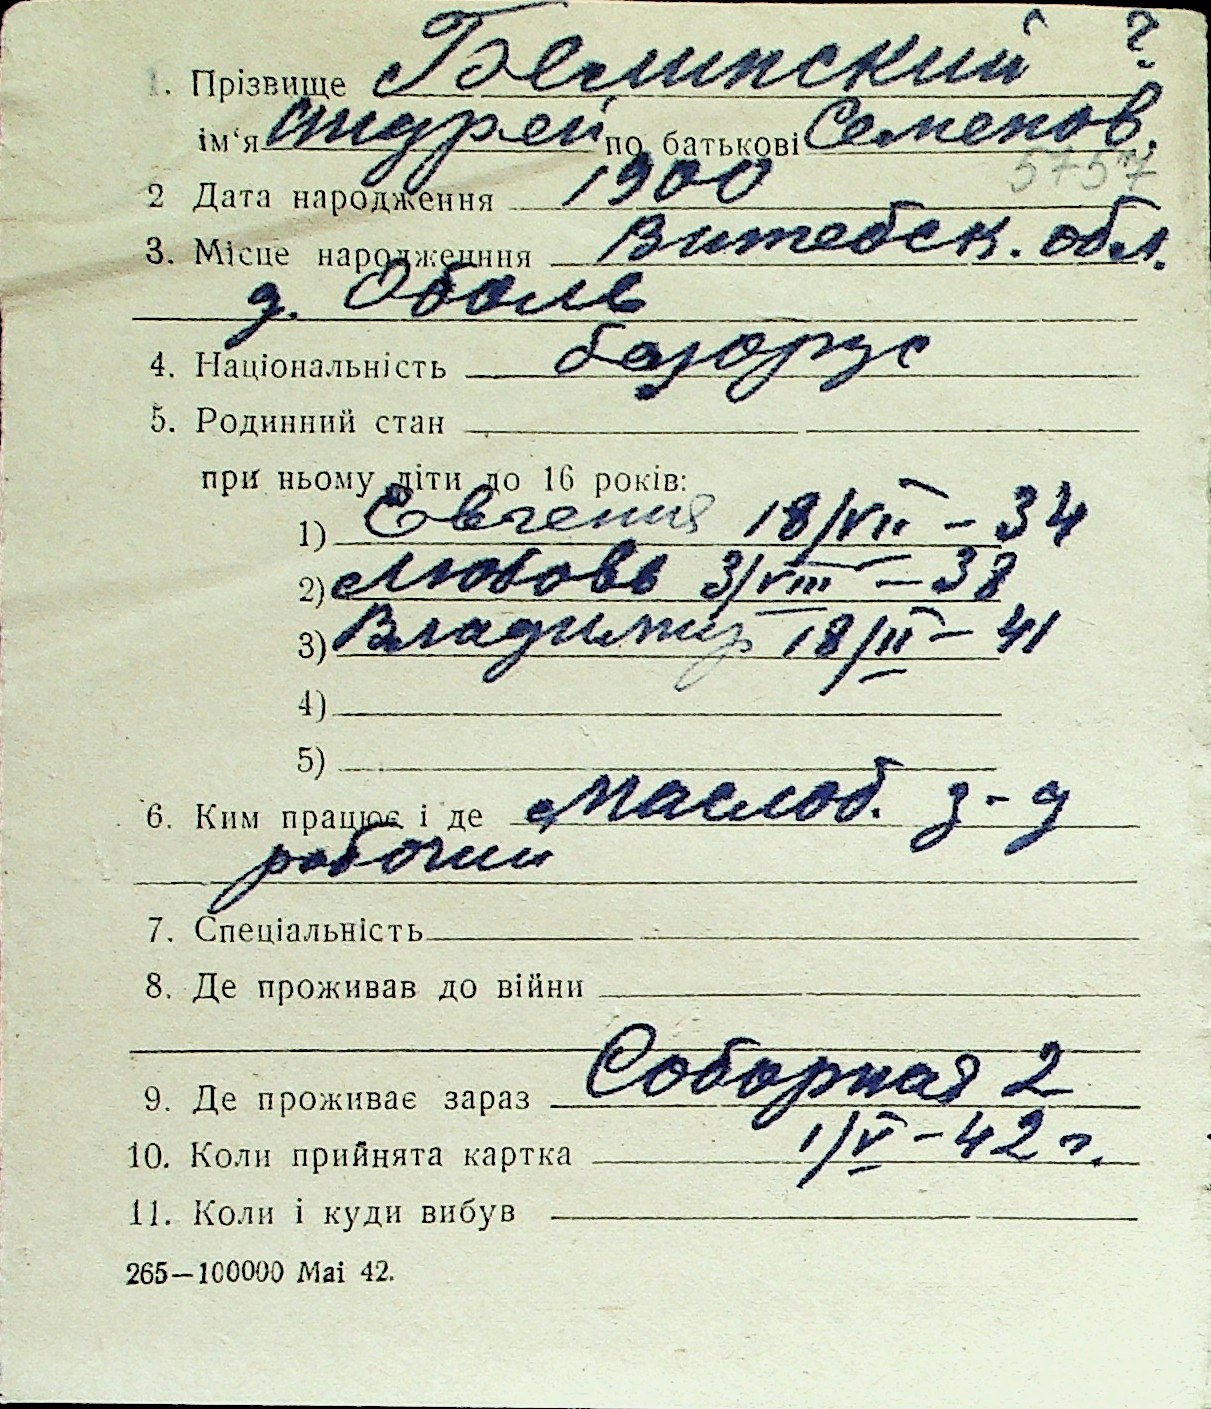 1. Прізвище Белинский ?
ім‘я Андрей по батькові Семенов.
5757
2 Дата народження 1900
3. Місце народженння Витебск. обл.
д. Оболь
4. Національність белорус
5. Родинний стан
при ньому діти до 16 років:
1) Евгения 18/VII – 34
2) Любовь 3/VIII – 38
3) Владимир 18/II – 41
4)
5)
6. Ким працює і де Маслоб. з-д
рабочий
7. Спеціальність
8. Де проживав до війни
9. Де проживає зараз Соборная 2
10. Коли прийнята картка 1/V – 42 г.
11. Коли і куди вибув
265—100000 Mai 42.